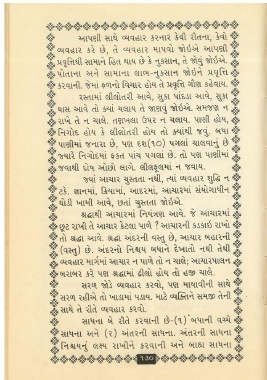 આપણી સાથે વ્યવહાર કરનાર કેવી રીતના, કેવો
વ્યવહાર કરે છે, તે વ્યવહાર માપવો જોઇએ આપણી
પ્રવૃત્તિથી સામાને હિત થાય છે કે નુકસાન, તે જોવું જોઇએ.
પોતાના અને સામાના લાભ-નુકસાન જોઇને પ્રવૃત્તિ
કરવાની. જેમાં ફળનો વિચાર હોય તે પ્રવૃત્તિ ગૌણ કહેવાય.
રસ્તામાં લીલોતરી આવે, સુકા પાંદડા આવે, સુકા
ઘાસ આવે તો ક્યાં ચલાય તે જાણવું જોઇએ. સમજણ ન
રાખે તે ન ચાલે. તણખલા ઉપર ન ચલાય. પાણી હોય,
નિગોદ હોય કે લીલોતરી હોય તો ક્યાંથી જવું. બધા
પાણીમાં જનારા છે, પણ દશ(૧૦) પગલાં ચાલવાનું છે
જ્યારે નિગોદમાં ફકત પાંચ પગલાં છે. તો પણ પાણીમાં
જવાથી દોષ ઓછો લાગે. લીલફૂલમાં ન જવાય.
જ્યાં આચાર ચુસ્તતા નથી, ત્યાં વ્યવહાર શુદ્ધિ ન
ટકે. જ્ઞાનમાં, ક્રિયામાં, આદરમાં, આચારમાં સંયોગાધીન
થોડી ખામી આવે, છતાં ચુસ્તતા જોઇએ.
શ્રદ્ધાથી આચારમાં નિયંત્રણ આવે. જે આચારમાં
છુટ રાખી તે આચાર કેટલા પાળે ? આચારની કડકાઇ રાખો
તો શ્રદ્ધા આવે. શ્રદ્ધા અંદરની વસ્તુ છે, આચાર બહારની
(વસ્તુ) છે. અંદરનો નિશ્ચય બધાને દેખાતો નથી તેથી
વ્યવહાર માર્ગમાં આચાર ન પાળે તો ન ચાલે; આચારપાલન
બરાબર કરે પણ શ્રદ્ધામાં ઢીલો હોય તો હજી ચાલે.
સરળ જોડે વ્યવહાર કરવો, પણ માયાવીની સાથે
સરળ રહીએ તો ખાડામાં પડાય. માટે વ્યક્તિને સમજી તેની
સાથે તે રીતે વ્યવહાર કરવો.
સાધના બે રીતે કરવાની છે-(૧) બધાની વચ્ચે
સાધના અને (૨) અંતરની સાધના. અંતરની સાધના
નિશ્ચયનું લક્ષ્ય રાખીને કરવાની અને બાહ્ય સાધના
૧૩૦